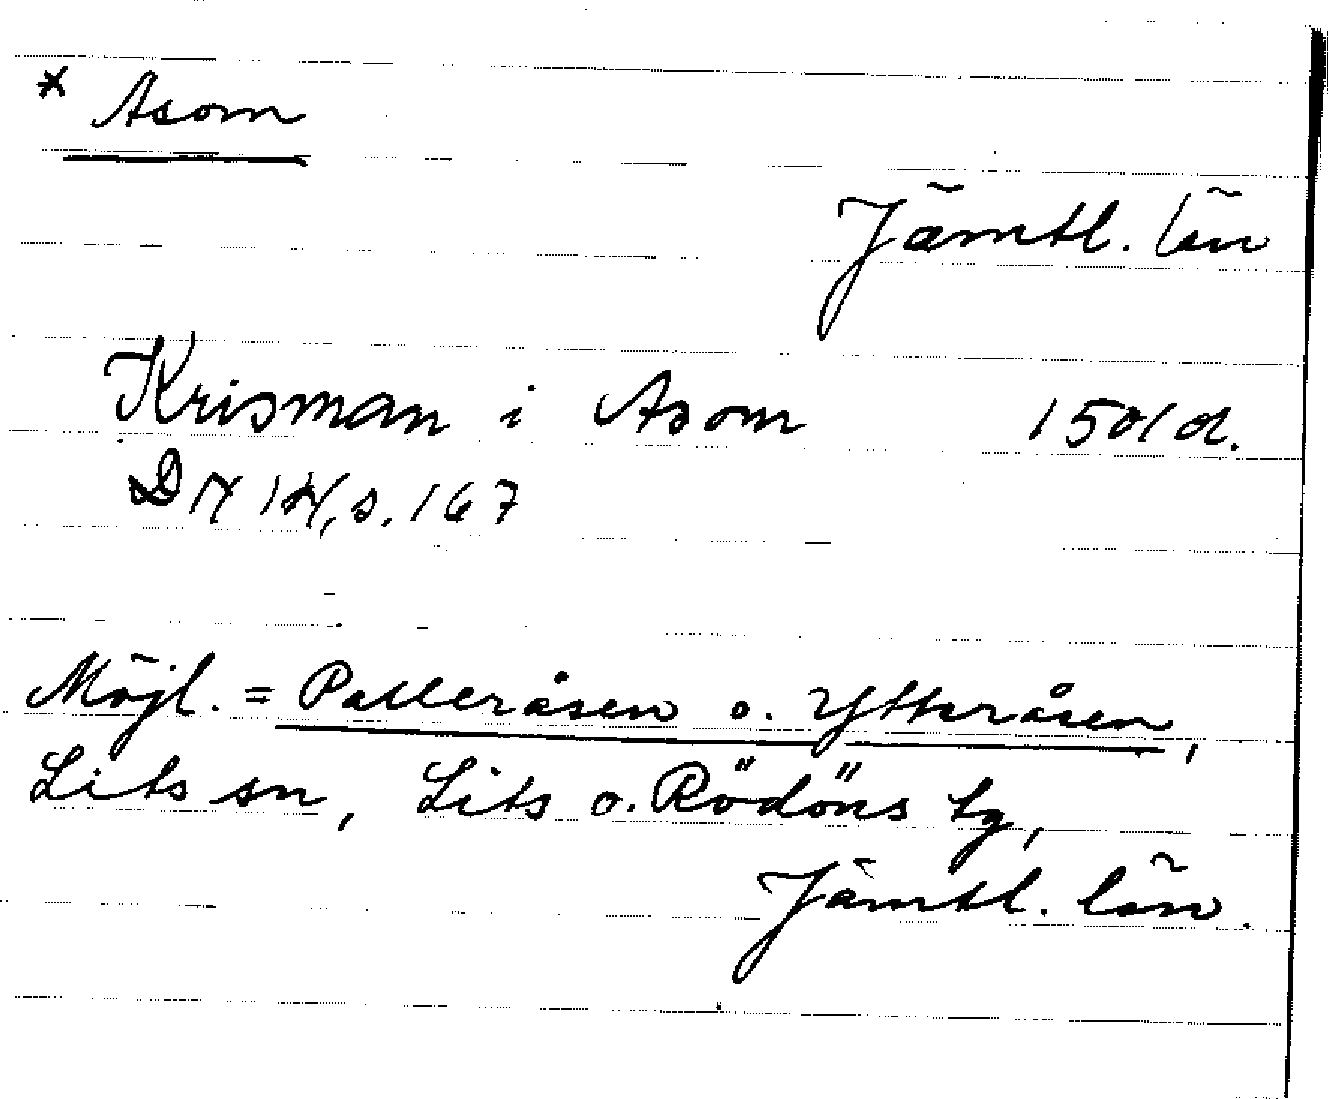 * Asom
Jämtl. län
Krisman i Asom 1501 d.
DN 14, s. 167
Möjl. = Palleråsen o. Ytteråsen,
Lits sn, Lits o. Rödöns tg,
Jämtl. län.